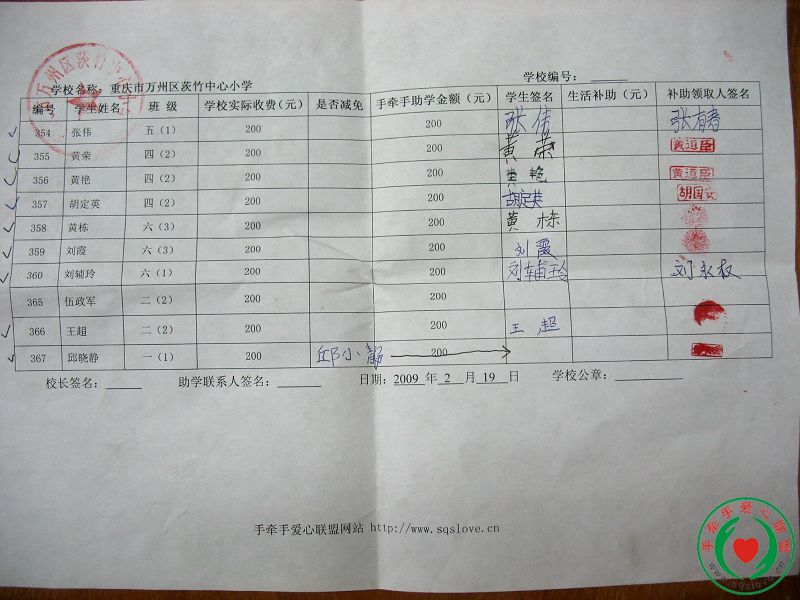 学校编号：
学校名称：重庆市万州区茨竹中心小学
编号 学生姓名 班 级 学校实际收费（元） 是否减免 手牵手助学金额（元） 学生签名 生活补助（元） 补助领取人签名
354 张伟 五（1） 200 200 张伟 张有春
355 黄荣 四（2） 200 200 黄荣 黄道臣
356 黄艳 四（2） 200 200 黄艳 黄道臣
357 胡定英 四（2） 200 200 胡定英 胡国安
358 黄栋 六（3） 200 200 黄栋
359 刘霞 六（3） 200 200 刘霞
360 刘辅玲 六（1） 200 200 刘辅玲 刘永权
365 伍政军 二（2） 200 200
366 王超 二（2） 200 200 王超
367 邱晓静 一（1） 200 邱小静 200
校长签名： 助学联系人签名： 日期：2009 年 2 月 19 日 学校公章：
手牵手爱心联盟网站 http://www.sqslove.cn
手牵手爱心联盟
www.sqslove.cn